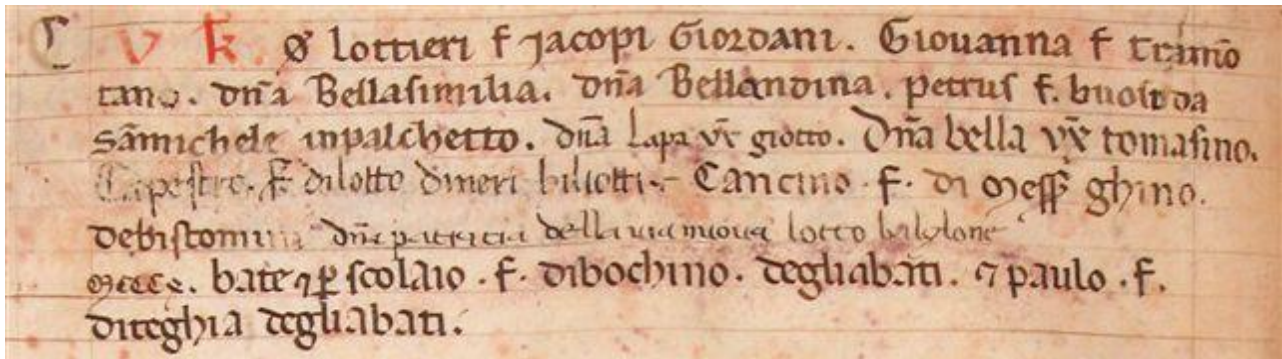 C V k. ø lottieri f Jacopi Giordani. Giouanna f trimō
tano. dn̄a Bellasimilia. dn̄a Bellandina. petrus f. buoit da
sāmichele inpalchetto. dn̄a Lapa vx̄ giotto. Dn̄a bella vx̄ tomasino.
Capestro. f. dilotto dineri biliotti. Cancino. f. di Mess̄ ghino.
debistomini dn̄a patricia della uia nuoua lotto babylone
bate ⁊ ꝑ scolaio. f. dibochino. degliabati. ⁊ paulo. f.
diteghia degliabati.